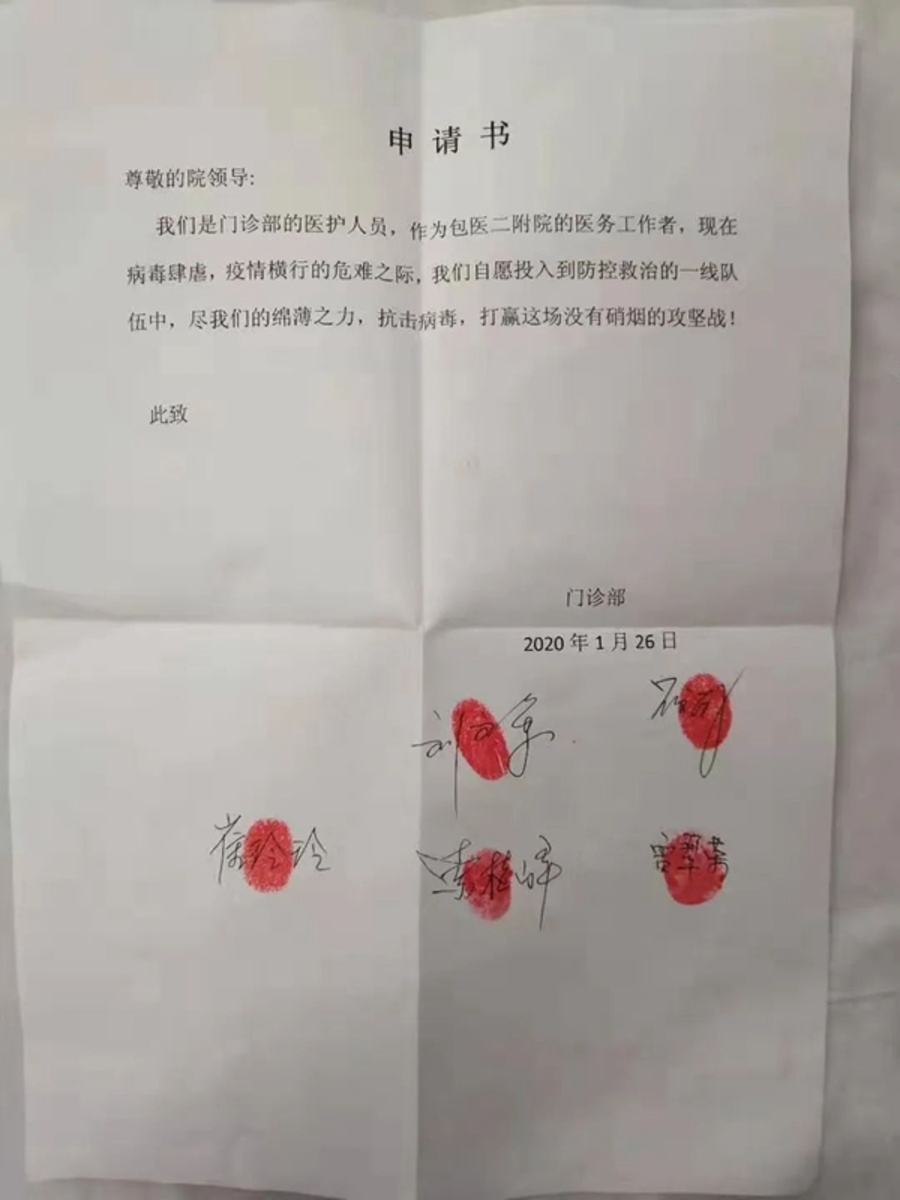 申请书
尊敬的院领导:
我们是门诊部的医护人员，作为包医二附院的医务工作者，现在
病毒肆虐，疫情横行的危难之际，我们自愿投入到防控救治的一线队
伍中，尽我们的绵薄之力，抗击病毒，打赢这场没有硝烟的攻坚战！
此致
门诊部
2020年1月26日